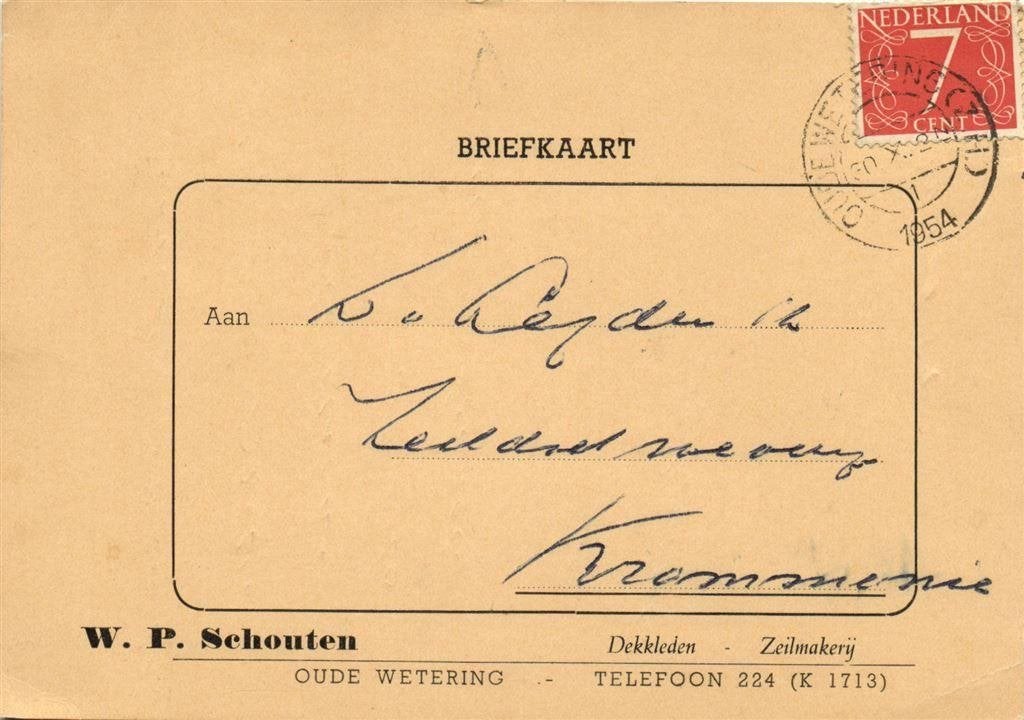 NEDERLAND
7
CENT
OUDE WETERING (Z.H)
1954
BRIEFKAART
Aan v. Leyden
Zeildoekweverij
Krommenie
W. P. Schouten Dekkleden - Zeilmakerij
OUDE WETERING .- TELEFOON 224 (K 1713)